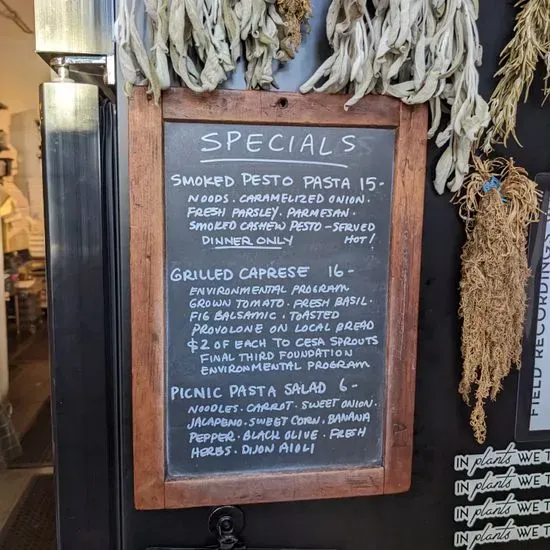 SPECIALS
SMOKED PESTO PASTA 15-
NOODS. CARAMELIZED ONION.
FRESH PARSLEY. PARMESAN.
SMOKED CASHEW PESTO - SERVED
DINNER ONLY HOT!
GRILLED CAPRESE 16-
ENVIRONMENTAL PROGRAM
GROWN TOMATO. FRESH BASIL.
FIG BALSAMIC. TOASTED
PROVOLONE ON LOCAL BREAD
$2 OF EACH TO CESA SPROUTS
FINAL THIRD FOUNDATION
ENVIRONMENTAL PROGRAM
PICNIC PASTA SALAD 6-
NOODLES. CARROT. SWEET ONION.
JALAPENO. SWEET CORN. BANANA
PEPPER. BLACK OLIVE. FRESH
HERBS. DIJON AIOLI
FIELD RECORDINGS
IN plants WE T
IN plants WE T
IN plants WE T
IN plants WE T